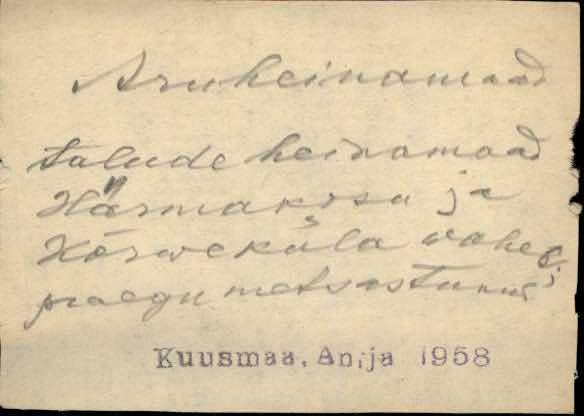 Aruheinamaad
talude heinamaad
Härmakosu ja
Kõrweküla vahel;
praegu metsastunud
Kuusmaa, Anija 1958